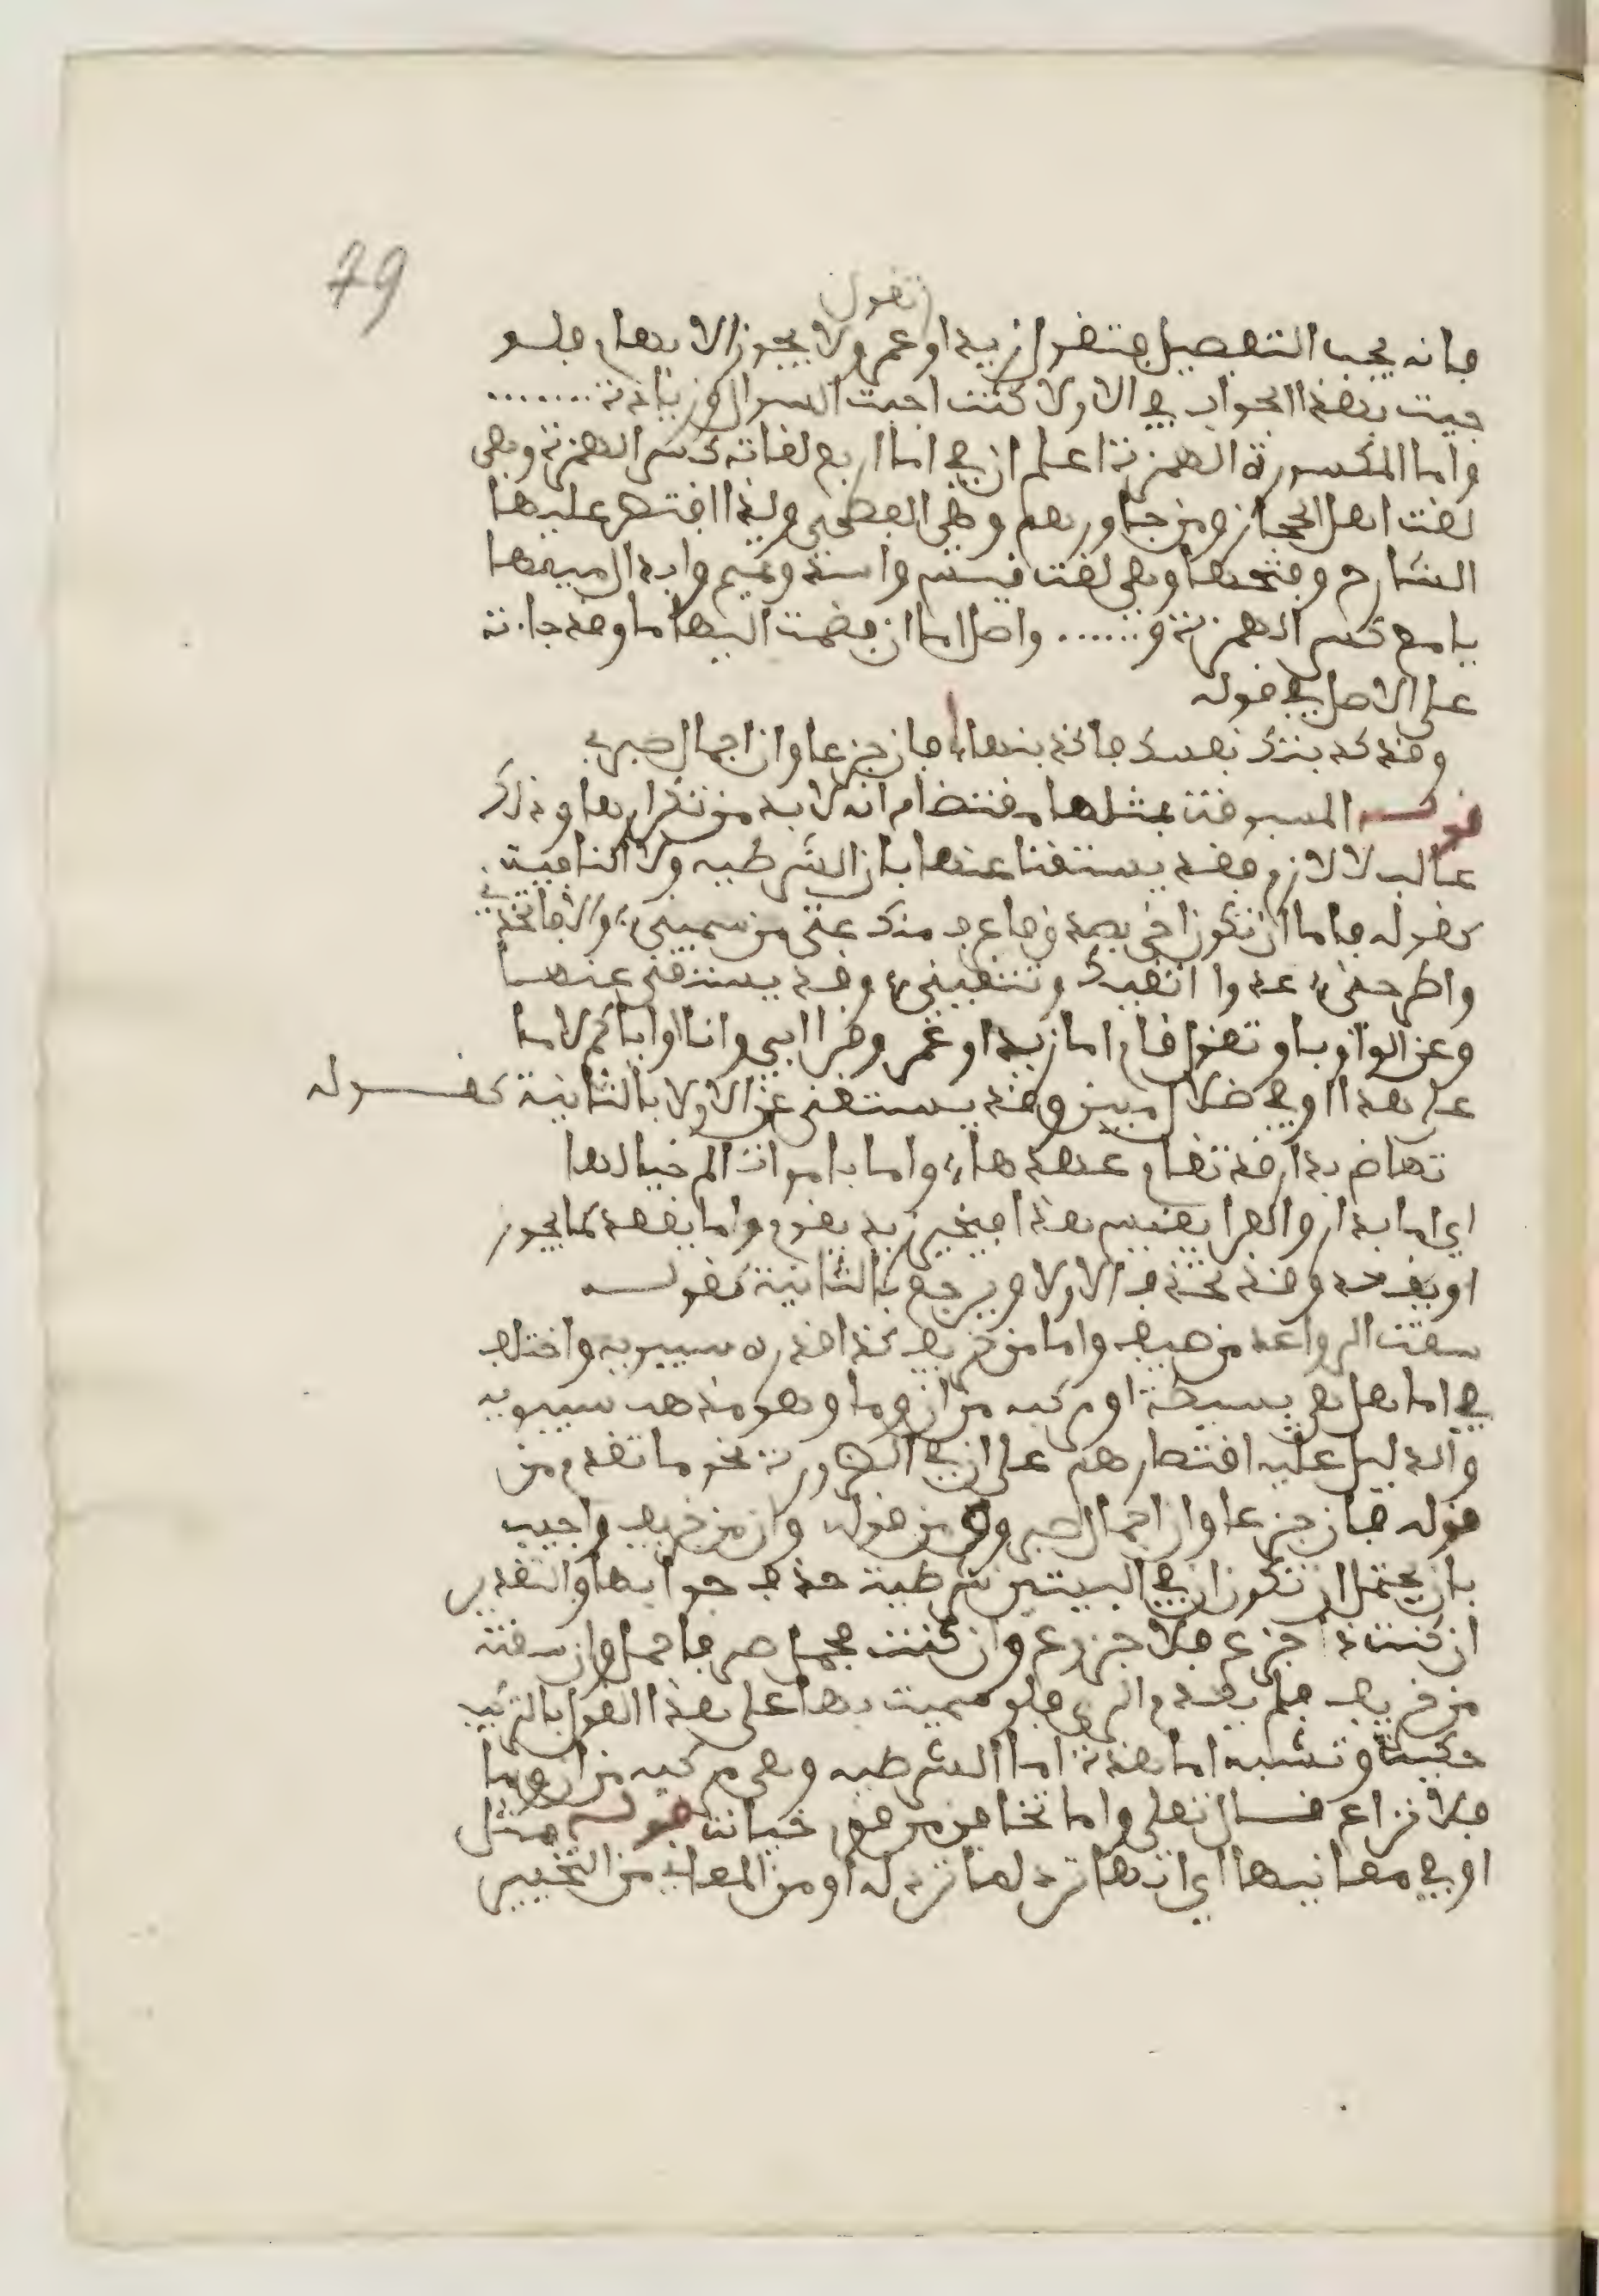 79
تقول
فانه يجب التفصيل فتقول زيد او عمر ولا يجوز الا بدها فلو
جيت بهذا الجواب في الاولا كنت اجبت السوال وزيادة .......
واما المكسورة الهمزة اعلم ان في اما اربع لغات كسر الهمزة وهي
لغت اهل الحجاز ومن جاورهم وهي الفصحى ولذا اقتصر عليها
الشارح وفتحها وهي لغت قيس واسد وتميم وابدال ميمها
يا مع كسر الهمزة و...... واصل اما ان فضمت اليها ما وقد جاءت
على الاصل في قوله
وقد كذبتك نفسك فاكذبنها فان جزعا وان اجمال صبر
قوله المسبوقت بمثلها مقتضاه انه لا بد من تكرارها وذلك
غالب لا لازم فقد يستغنا عنها بان الشرطيه ولا النافيت
كقوله فاما ان تكون اخي بصدق فاعرف منك غثي من سميني والا فاتخذني
واطرحني عدوا اتقيك وتتقيني وقد يستغنى عنها
وعن الواو باو تقول قام اما زيد او عمر وقرا ابي وانا او اياكم لاما
على هذا او في ضلال مبين وقد يستغنى عن الاولا بالثانية كقوله
تهاض بدار قد تقادم عهدها واما باموات الم خيالها
اي اما بدار والفرا يقيس هذا فيجيز زيد يقوم واما يقعد كما يجوز
او يقعد وقد تحذف الاولا ويرجع بالثانية كقوله
سقت الرواعد من صيف واما من خريف كذا قدره سيبويه واختلف
في اما هل هي بسيطة او مركبه من ان وما وهو مذهب سيبويه
والدليل عليه اقتصارهم على ان في الضرورة نحو ما تقدم من
قوله فان جزعا وان اجمال صبر و من قوله وان من خريف واجيب
بان يحتمل ان تكون ان في البيتين شرطية حذف جوابها والتقدير
ان كنت ذا جزع فلا جزوع وان كنت مجمل صبر فاجمل وان سقته
من خريف فلم يعدم الري فلو سميت بها على هذا القول بالتركيب
حكيت وتشبه اما هذة اما الشرطيه وهي مركبه من ان وما
فلا نزاع قال تعلى واما تخافن من قوم خيانت قوله مثل
او في معانيها اي انها ترد لما ترد له او من المعاني من التخيير